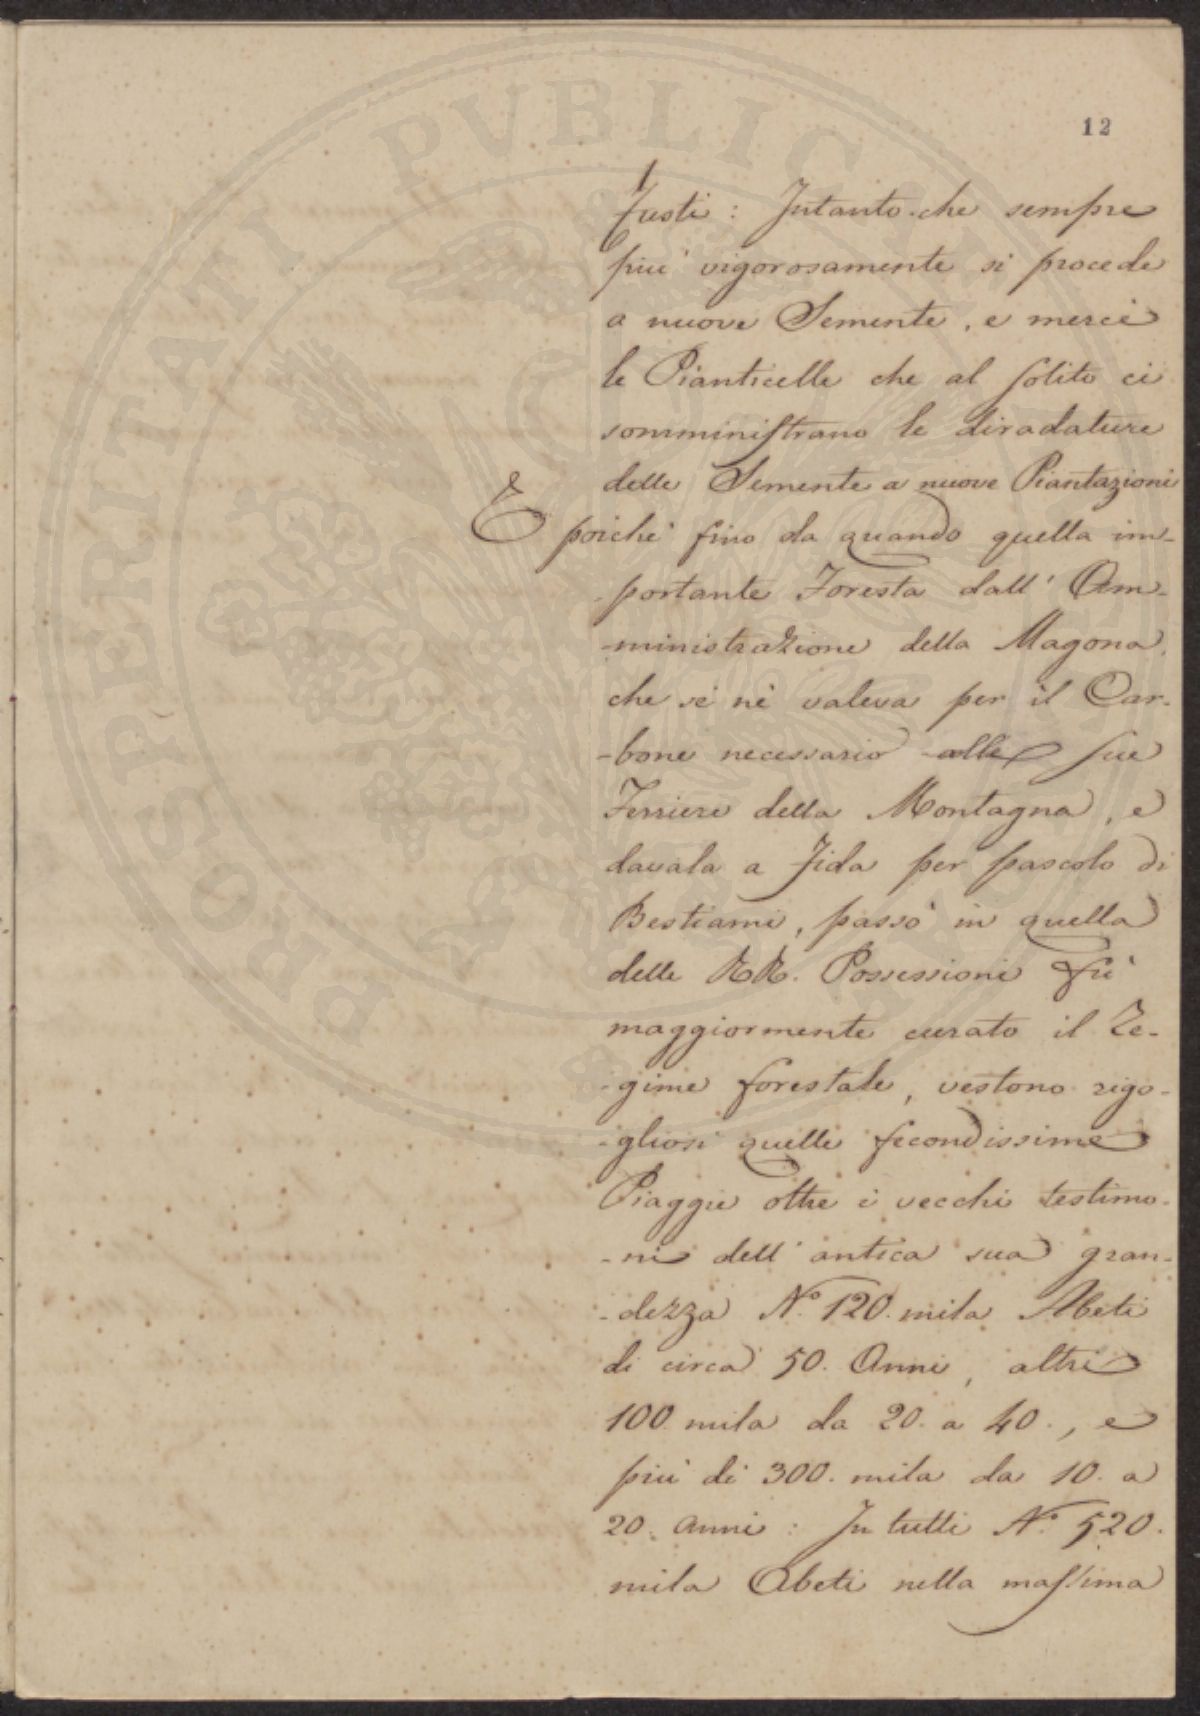 12
fusti: Intanto che sempre
più vigorosamente si procede
a nuove Semente, e mercè
le Pianticelle che al solito ci
somministrano le diradature
delle Semente a nuove Piantazioni
E poichè fino da quando quella im-
-portante Foresta dall' Am-
-ministrazione della Magona,
che si nè valeva per il Car-
-bone necessario alle sue
Ferriere della Montagna, e
davala a fida per pascolo di
Bestiami, passò in quella
delle RR. Possessioni fù
maggiormente curato il Re-
-gime forestale, vestono rigo-
-gliosi quelle fecondissime
Piaggie oltre i vecchi testimo-
-ni dell' antica sua gran-
-dezza N.° 120. mila Abeti
di circa 50. Anni, altri
100. mila da 20. a 40., e
più di 300. mila da 10. a
20. anni: In tutti N.° 520.
mila Abeti nella massima
PROSPERITATI PVBLICAE